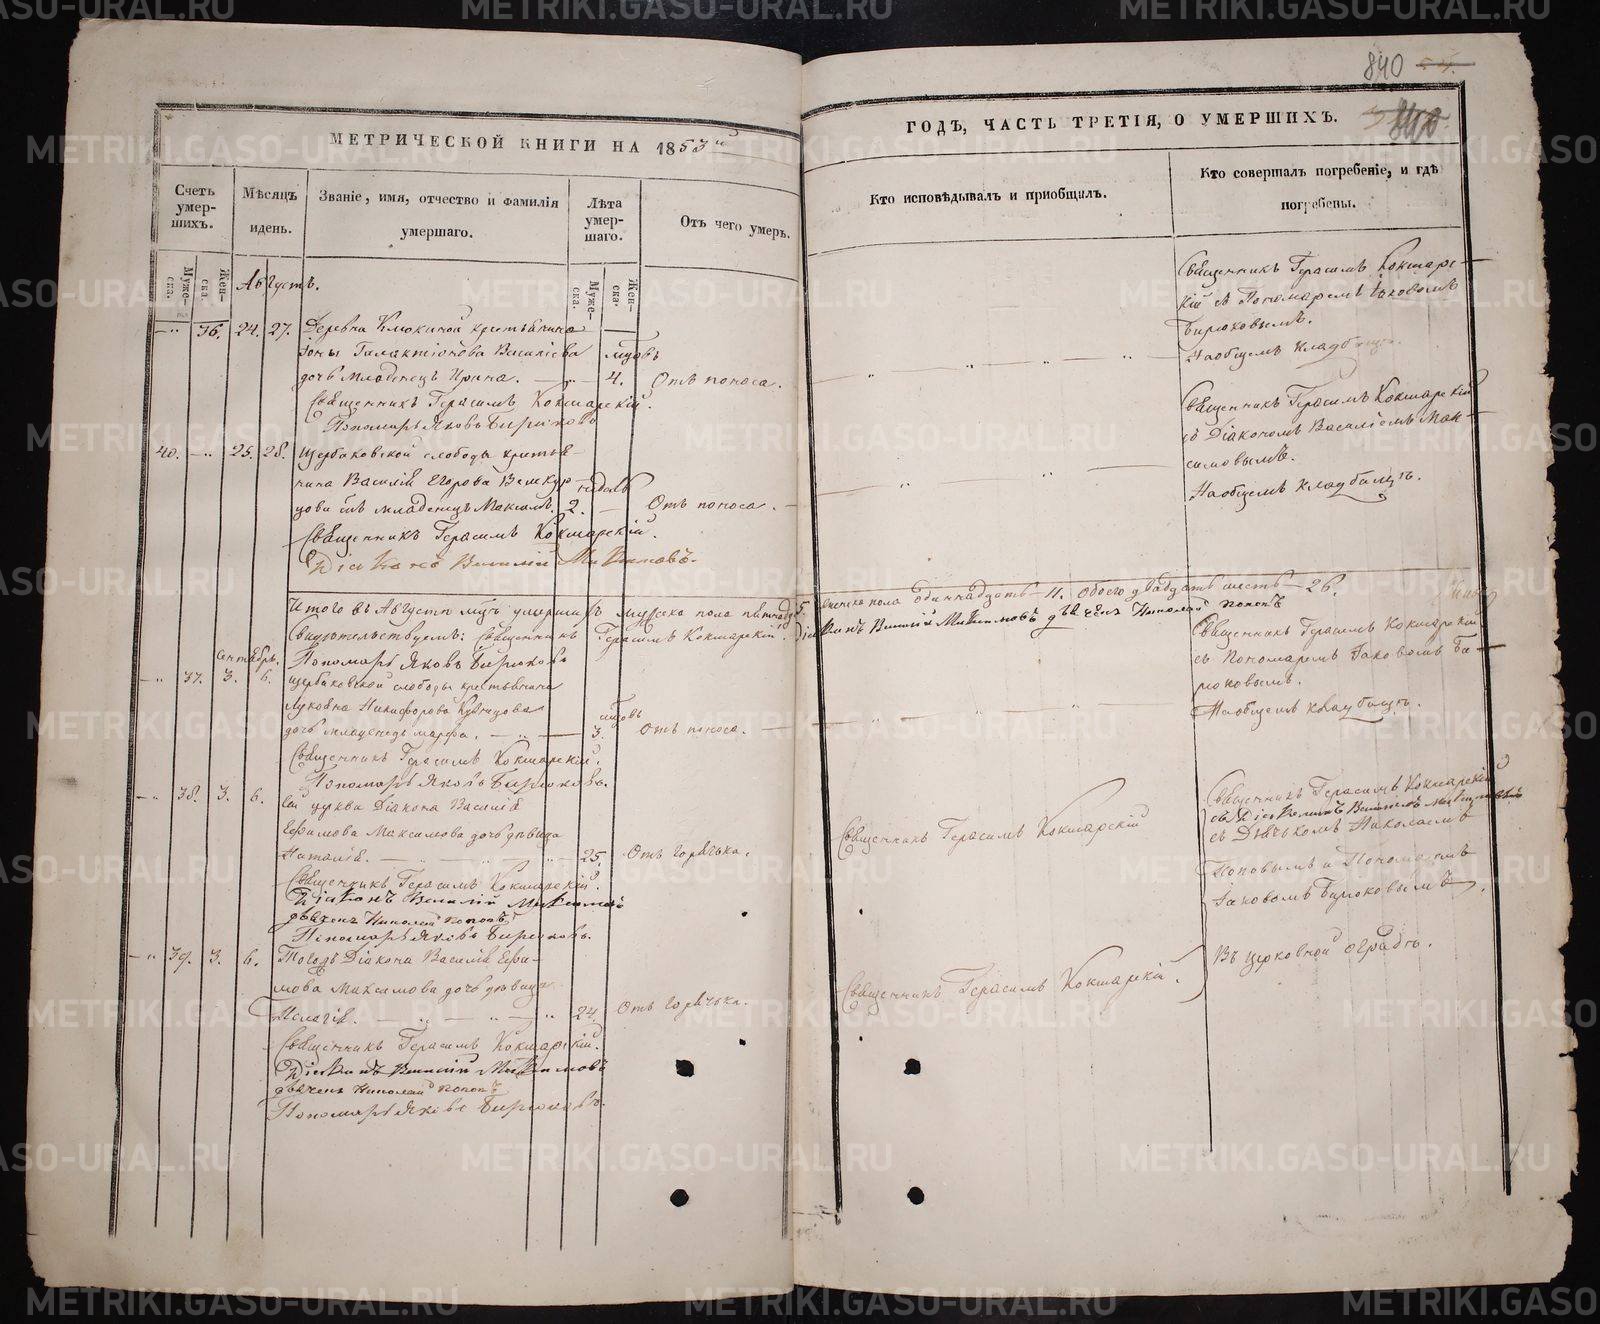 840
МЕТРИЧЕСКОЙ КНИГИ НА 1853й
ГОДЪ, ЧАСТЬ ТРЕТІЯ, О УМЕРШИХЪ.
Счетъ умершихъ.
Мѣсяцъ и день.
Званіе, имя, отчество и фамилія умершаго.
Лѣта умершаго.
Отъ чего умеръ.
Кто исповѣдывалъ и пріобщилъ.
Кто совершалъ погребеніе, и гдѣ погребены.
Мужеска.
Женска.
Августъ.
Мужеска.
Женска.
36. 24. 27. Деревни Клюкиной крестьянина
Іоны Галактіонова Василіева мцовъ
дочь младенецъ Ирина. 4. Отъ поноса.
Священникъ Герасимъ Кокшарскій.
Пономарь Яковъ Бирюковъ
Священникъ Герасимъ Кокшарскій съ Пономаремъ Іаковомъ
Бирюковымъ.
На общемъ кладбище.
40. 25. 28. Щербаковской слободы крестьянина Василія Егорова недѣль
сынъ младенецъ Максимъ. 2. Отъ поноса.
Священникъ Герасимъ Кокшарскій.
Діаконъ Василій Максимовъ.
Священникъ Герасимъ Кокшарскій
съ Діакономъ Василіемъ Максимовымъ.
На общемъ кладбищѣ.
Итого въ Августѣ мцѣ умершихъ мужеска пола пятнадц 15. женска пола одиннадцать 11. обоего двадцать шесть 26.
Свидѣтельствуемъ: Священникъ Герасимъ Кокшарскій. Діаконъ Василій Максимовъ дьячекъ Николай Поповъ
Пономарь Яковъ Бирюковъ
Сентябрь.
37. 3. 6. Щербаковской слободы крестьянина
Никифорова мцовъ
дочь младенецъ Марфа. 3. Отъ поноса.
Священникъ Герасимъ Кокшарскій.
Пономарь Яковъ Бирюковъ.
Священникъ Герасимъ Кокшарскій
съ Пономаремъ Іаковомъ Бирюковымъ.
На общемъ кладбищѣ.
38. 3. 6. Сей церкви Діакона Василія
Ефимова Максимова дочь дѣвица
Наталія. 25. Отъ горячька.
Священникъ Герасимъ Кокшарскій.
Діаконъ Василій Максимовъ
дьячекъ Николай Поповъ
Пономарь Яковъ Бирюковъ.
Священникъ Герасимъ Кокшарскій
Священникъ Герасимъ Кокшарскій
съ Діакономъ Василіемъ Максимовымъ
съ Дьячькомъ Николаемъ
Поповымъ и Пономаремъ
Іаковомъ Бирюковымъ.
39. 3. 6. Тогожъ Діакона Василія Ефимова Максимова дочь дѣвица
Пелагія. 24. Отъ горячька.
Священникъ Герасимъ Кокшарскій.
Діаконъ Василій Максимовъ
дьячекъ Николай Поповъ
Пономарь Яковъ Бирюковъ.
Священникъ Герасимъ Кокшарскій.
Въ церковной оградѣ.
METRIKI.GASO-URAL.RU